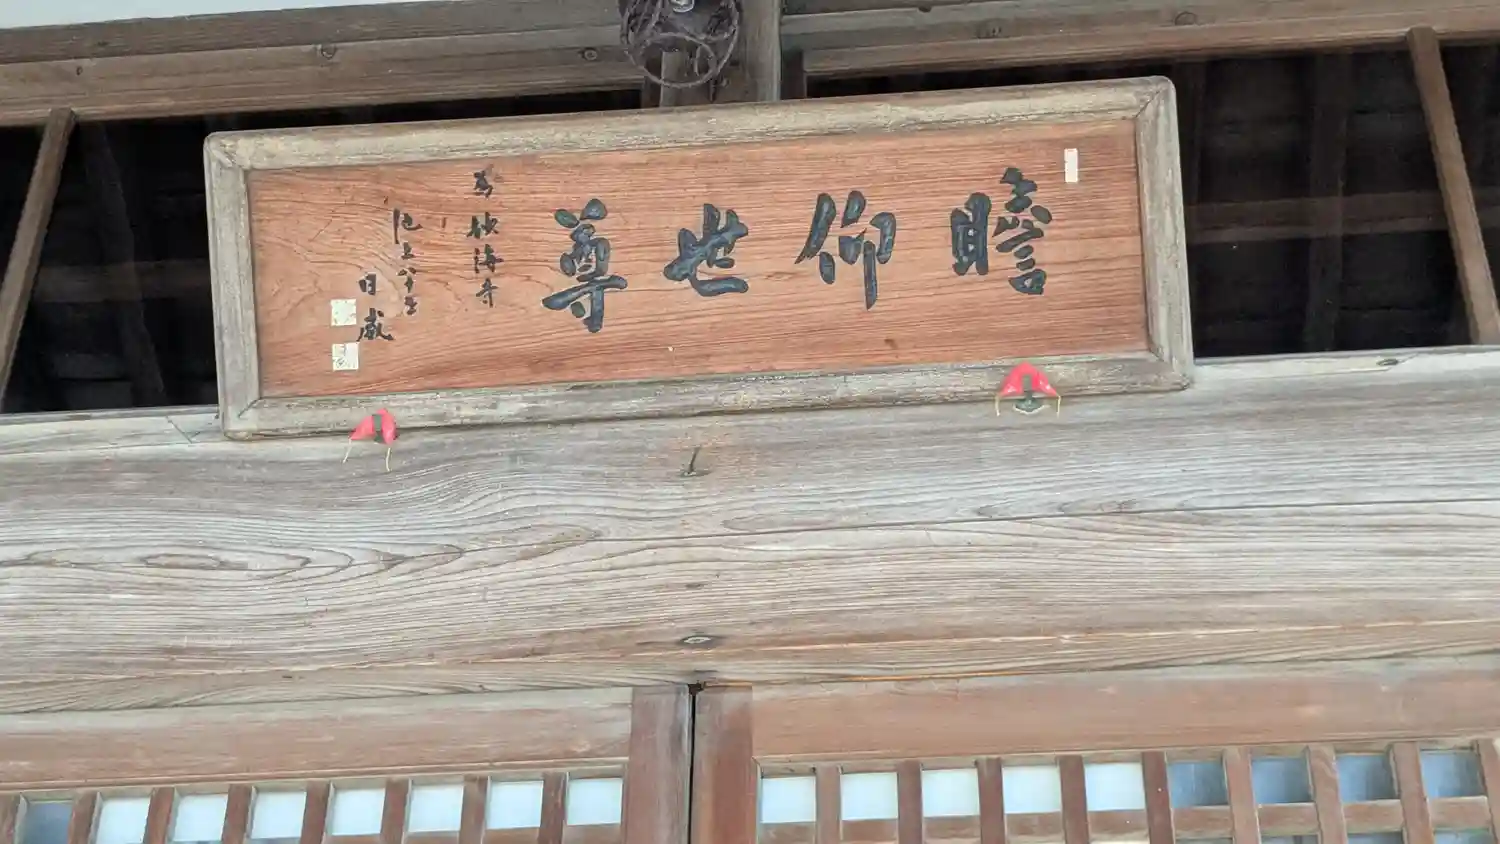 瞻仰世尊
為妙海寺
池上八十世
日威